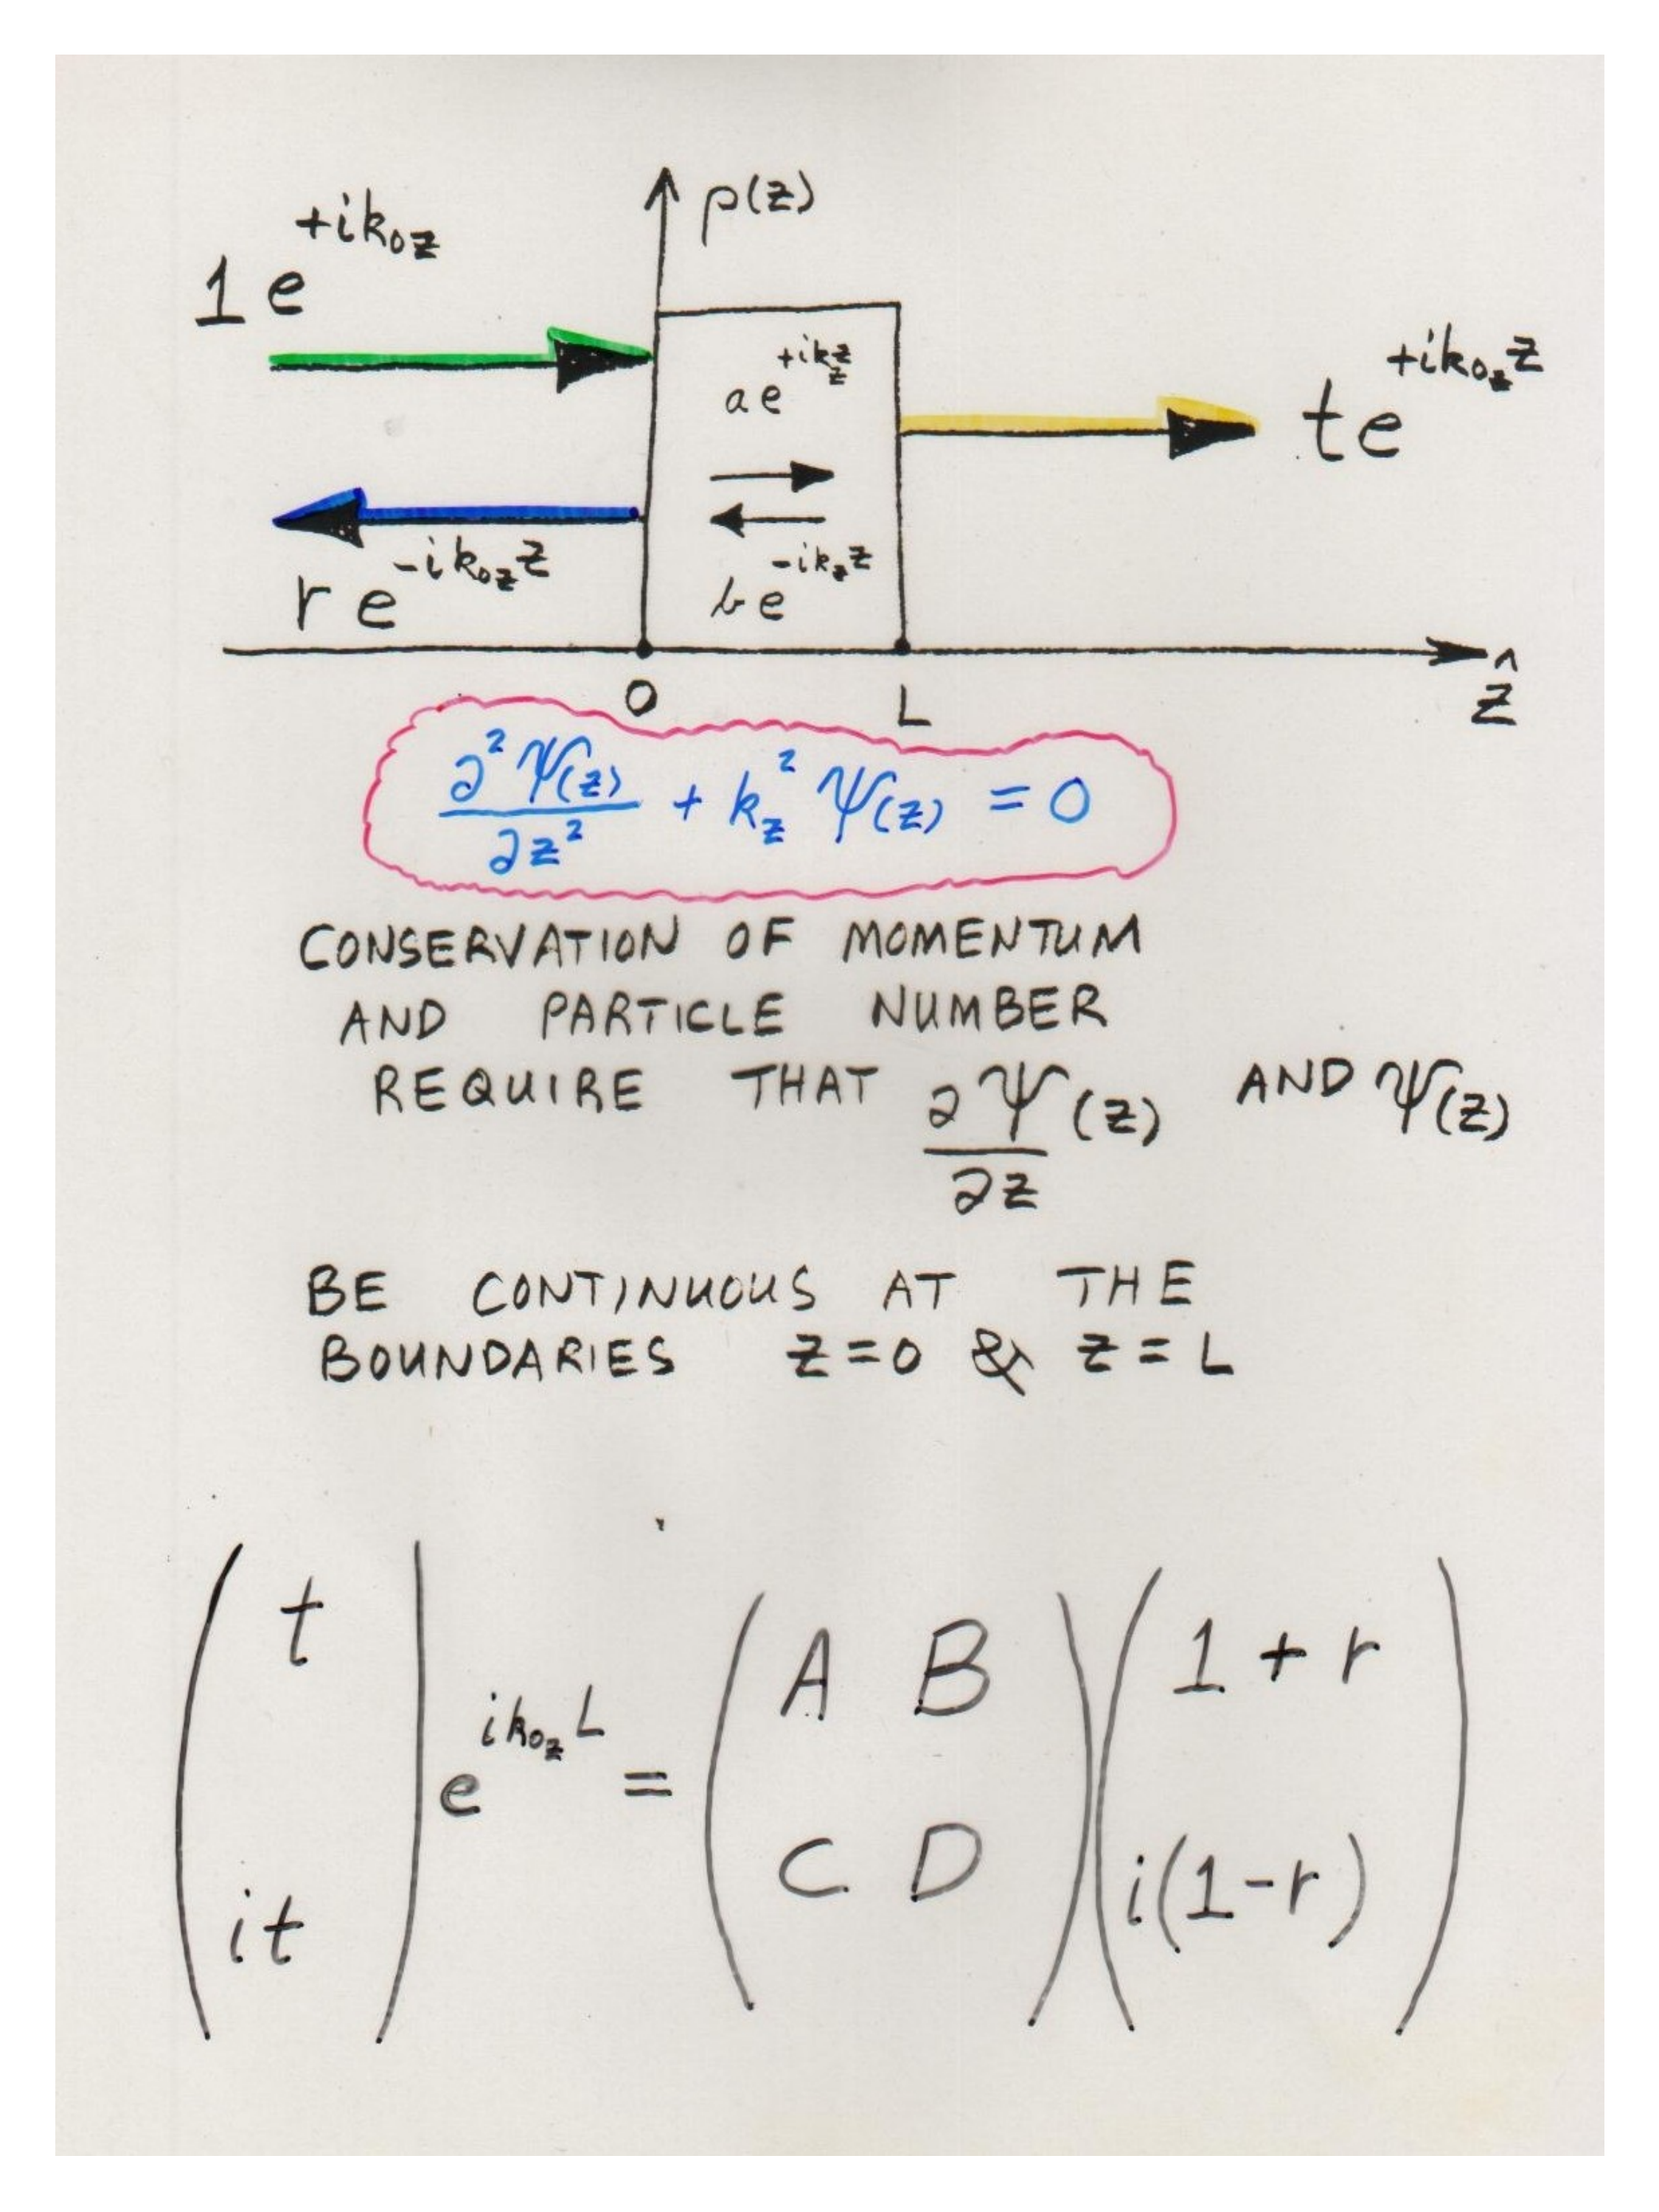 ρ(z)
1 e^{+ik_{0z}}
a e^{+ik_z z}
t e^{+ik_{0z} z}
r e^{-ik_{0z} z}
b e^{-ik_z z}
0 L ẑ
∂²Ψ(z)/∂z² + k_z² Ψ(z) = 0
CONSERVATION OF MOMENTUM
AND PARTICLE NUMBER
REQUIRE THAT ∂Ψ(z)/∂z AND Ψ(z)
BE CONTINUOUS AT THE
BOUNDARIES z=0 & z=L
( t ) e^{ik_{0z} L} = ( A B ) ( 1 + r )
( it ) ( C D ) ( i(1-r) )